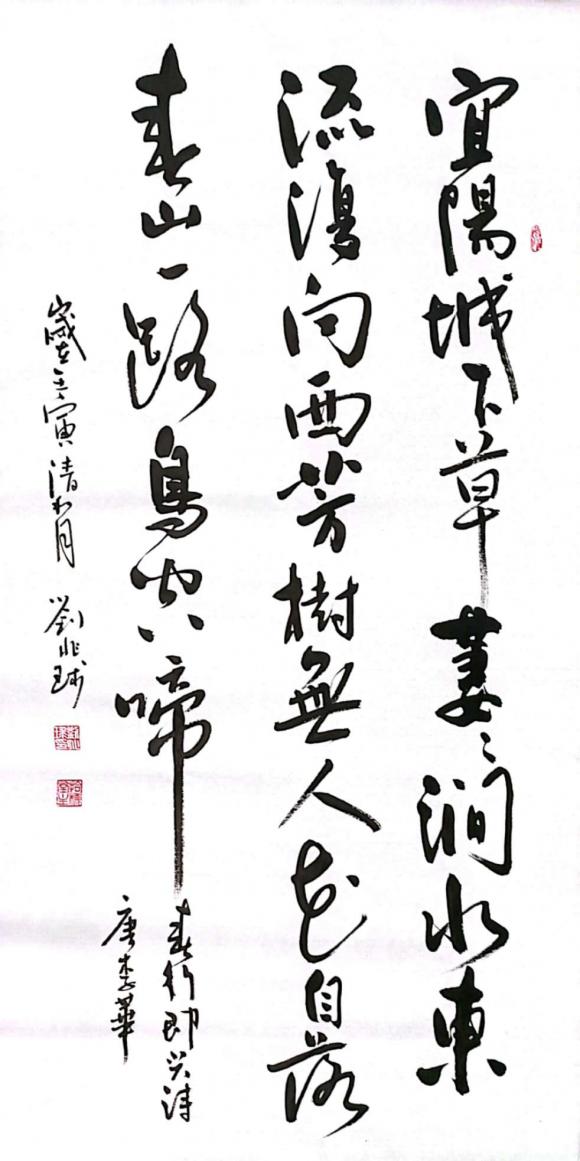 宜陽城下草萋〻澗水東
流復向西芳樹無人花自落
春山一路鳥空啼
春行即兴诗
唐李華
歲在壬寅清和月 劉